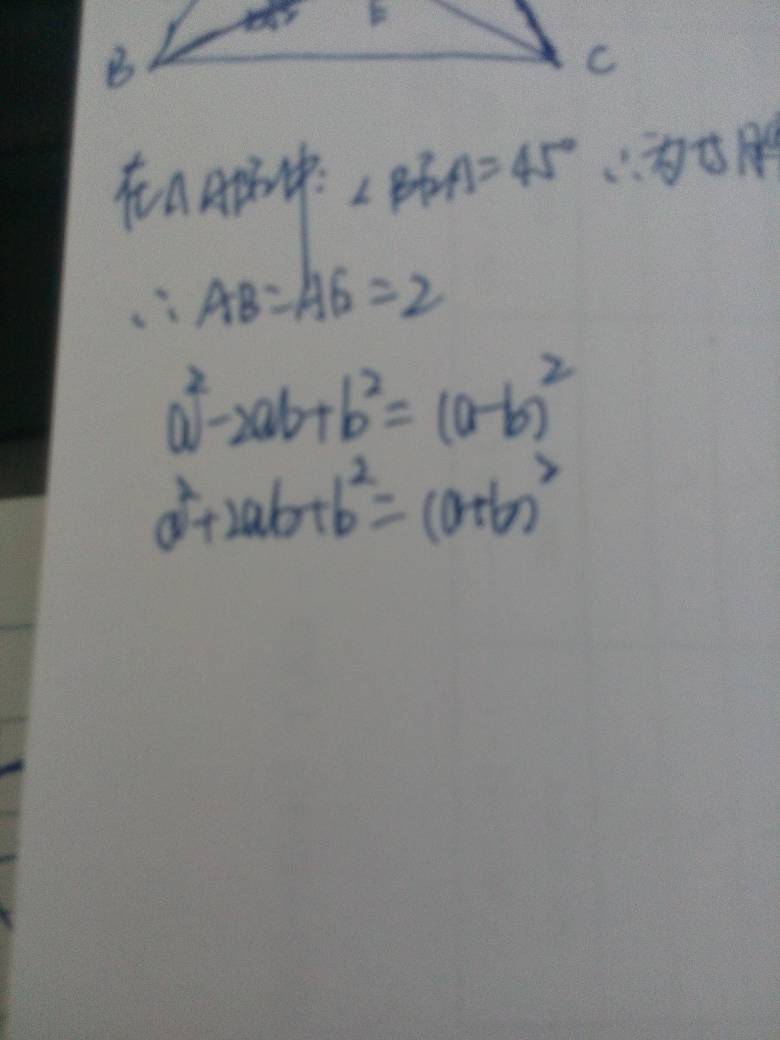 E
B C
在△ABG中: ∠BGA=45° ∴为等腰
∴AB=AG=2
a²-2ab+b²=(a-b)²
a²+2ab+b²=(a+b)²